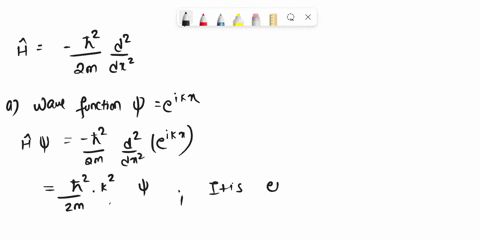 Ĥ = -ħ²/2m d²/dx²
a) Wave function ψ = e^{ikx}
Ĥψ = -ħ²/2m d²/dx² (e^{ikx})
= ħ²/2m . k² ψ ; It is e